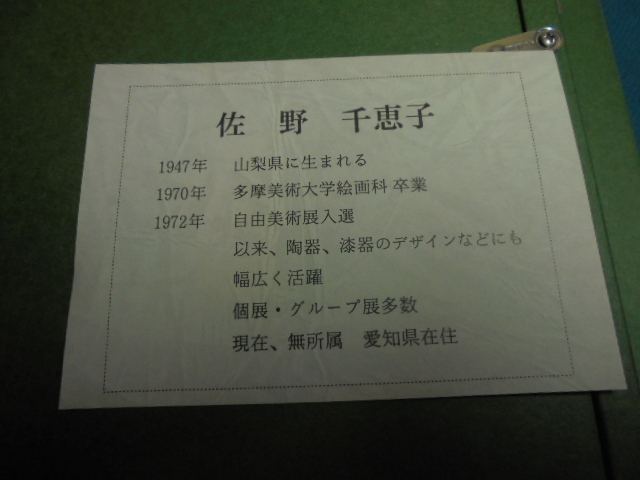 佐野 千恵子
1947年 山梨県に生まれる
1970年 多摩美術大学絵画科 卒業
1972年 自由美術展入選
以来、陶器、漆器のデザインなどにも
幅広く活躍
個展・グループ展多数
現在、無所属 愛知県在住